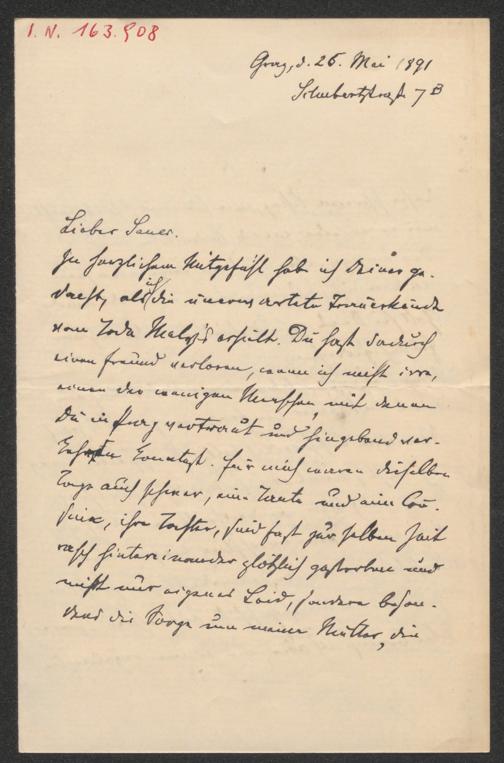 I. N. 163.508
Graz, d. 26. Mai 1891
Schubertstraße 7 B
Lieber Sauer.
In herzlichem Mitgefühl hab ich Deiner ge-
dacht, als ich die unerwartete Trauerkunde
vom Tode erhielt. Du hast dadurch
einen Freund verloren, wenn ich nicht irre,
einen der wenigen Menschen, mit denen
Du in Prag vertraut und hingebend ver-
kehren konntest. Für mich waren dieselben
Tage auch schwer, eine Tante und eine Cou-
sine, ihre Tochter, sind fast zur selben Zeit
rasch hintereinander plötzlich gestorben und
nicht nur eigenes Leid, sondern beson-
ders die Sorge um meine Mutter, die